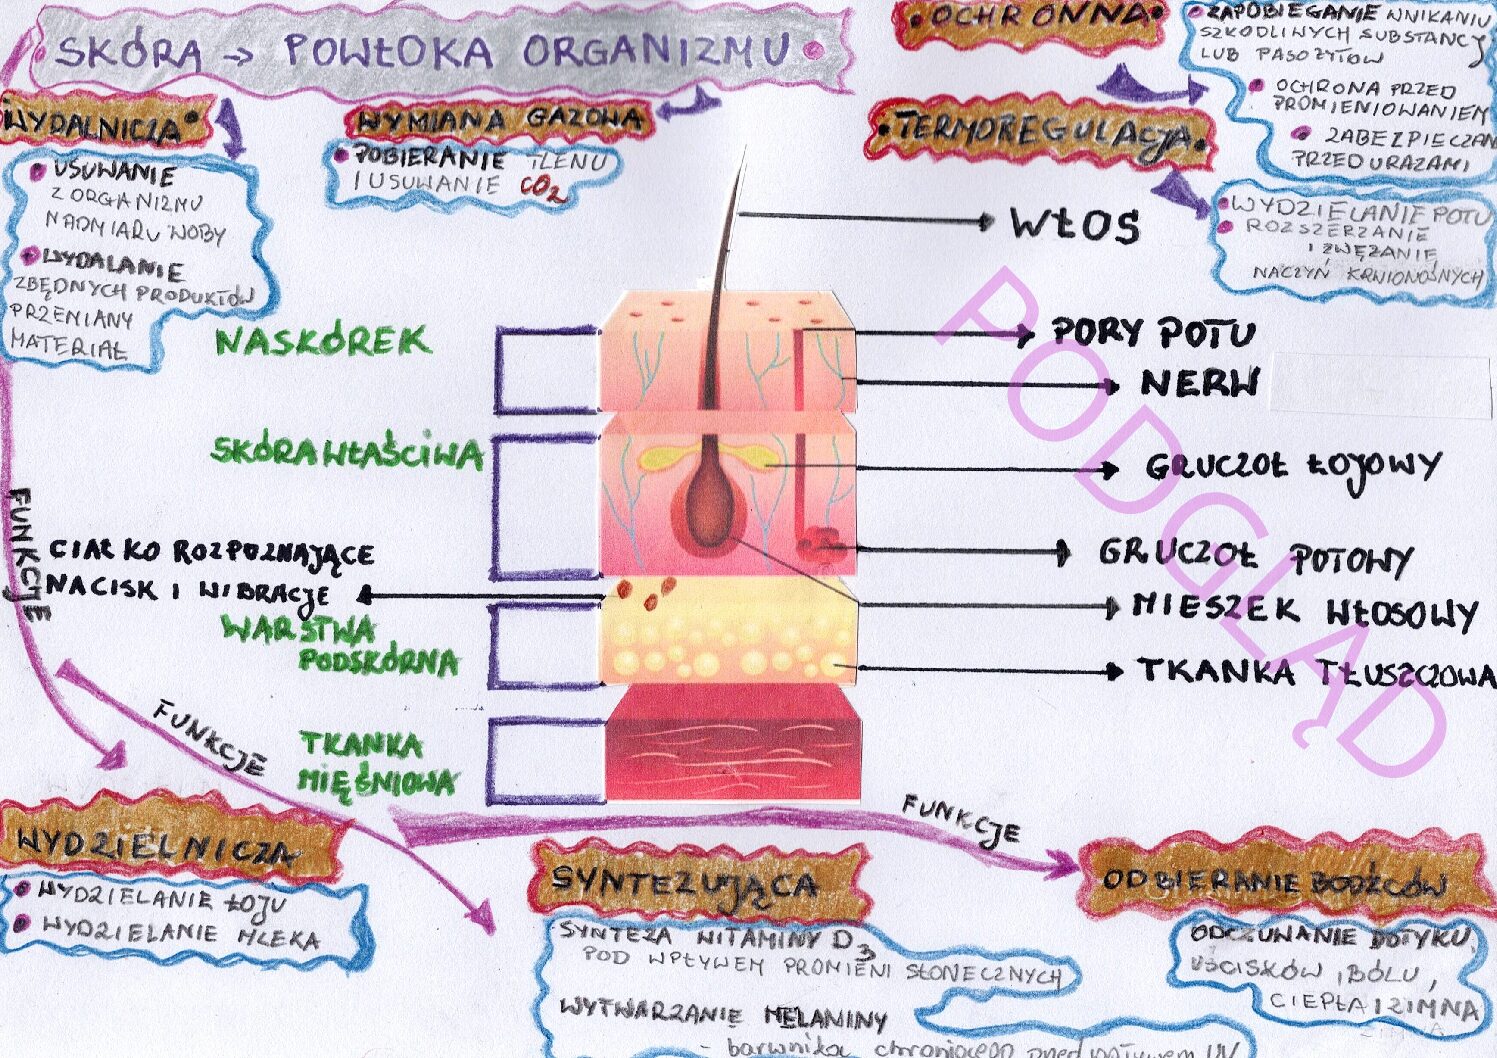 SKÓRA → POWŁOKA ORGANIZMU
WYDALNICZA
USUWANIE
Z ORGANIZMU
NADMIARU WODY
WYDALANIE
ZBĘDNYCH PRODUKTÓW
PRZEMIANY
MATERIAŁ
WYMIANA GAZOWA
POBIERANIE TLENU
I USUWANIE CO2
OCHRONNA
ZAPOBIEGANIE WNIKANIU
SZKODLIWYCH SUBSTANCJ
LUB PASOŻYTÓW
OCHRONA PRZED
PROMIENIOWANIEM
ZABEZPIECZAN
PRZED URAZAMI
TERMOREGULACJA
WYDZIELANIE POTU
ROZSZERZANIE
I ZWĘŻANIE
NACZYŃ KRWIONOŚNYCH
WŁOS
PORY POTU
NERW
GRUCZOŁ ŁOJOWY
GRUCZOŁ POTOWY
MIESZEK WŁOSOWY
TKANKA TŁUSZCZOWA
NASKÓREK
SKÓRA WŁAŚCIWA
CIAŁKO ROZPOZNAJĄCE
NACISK I WIBRACJE
WARSTWA
PODSKÓRNA
TKANKA
MIĘŚNIOWA
FUNKCJE
FUNKCJE
FUNKCJE
WYDZIELNICZA
WYDZIELANIE ŁOJU
WYDZIELANIE MLEKA
SYNTEZUJĄCA
SYNTEZA WITAMINY D3
POD WPŁYWEM PROMIENI SŁONECZNYCH
WYTWARZANIE MELANINY
- barwnika chroniącego przed wpływem UV
ODBIERANIE BODŹCÓW
ODCZUWANIE DOTYKU,
UŚCISKÓW, BÓLU,
CIEPŁA I ZIMNA
PODGLĄD